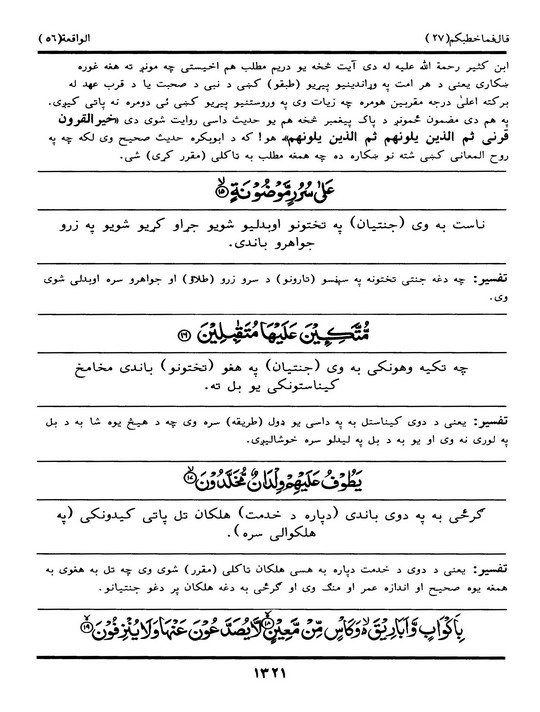 قال فما خطبكم (۲۷) الواقعة (۵۶)
ابن کثیر رحمة الله علیه له دې آیت څخه یو دریم مطلب هم اخیستی چه مونږ ته هغه غوره
ښکاری یعنی د هر امت په وړاندینیو پیړیو (طبقو) کښی د نبی د صحبت یا د قرب عهد له
برکته اعلیٰ درجه مقربین هومره چه زیات وی په وروستنیو پیړیو کښی ئی دومره نه پاتی کیږی.
په هم دی مضمون څمونږ د پاک پیغمبر څخه هم یو حدیث داسی روایت شوی دی «خیر القرون
قرنی ثم الذین یلونهم ثم الذین یلونهم». هو! که د ابوبکره حدیث صحیح وی لکه چه په
روح المعانی کښی شته نو ښکاره ده چه همغه مطلب به ټاکلی (مقرر کړی) شی.
عَلٰى سُرُرٍ مَّوْضُوْنَةٍ ۙ﴿۱۵﴾
ناست به وی (جنتیان) په تختونو اوبدلیو شویو جړاو کړیو شویو په زرو
جواهرو باندی.
تفسیر: چه دغه جنتی تختونه په سپنسو (تارونو) د سرو زرو (طلاؤ) او جواهرو سره اوبدلی شوی
وی.
مُّتَّكِـِٕیْنَ عَلَیْهَا مُتَقٰبِلِیْنَ ﴿۱۶﴾
چه تکیه وهونکی به وی (جنتیان) په هغو (تختونو) باندی مخامخ
کیناستونکی یو بل ته.
تفسیر: یعنی د دوی کیناستل به په داسی یو ډول (طریقه) سره وی چه د هیڅ یوه شا به د بل
په لوری نه وی او یو به د بل په لیدلو سره خوشالیږی.
یَطُوْفُ عَلَیْهِمْ وِلْدَانٌ مُّخَلَّدُوْنَ ۙ﴿۱۷﴾
ګرځی به په دوی باندی (دپاره د خدمت) هلکان تل پاتی کیدونکی (په
هلکوالی سره).
تفسیر: یعنی د دوی د خدمت دپاره به هسی هلکان ټاکلی (مقرر) شوی وی چه تل به هغوی به
همغه یوه صحیح او اندازه عمر او منګ وی او ګرځی به دغه هلکان پر دغو جنتیانو.
بِاَكْوَابٍ وَّ اَبَارِیْقَ ۙ۬ وَ كَاْسٍ مِّنْ مَّعِیْنٍ ۙ﴿۱۸﴾ لَّا یُصَدَّعُوْنَ عَنْهَا وَ لَا یُنْزِفُوْنَ ۙ﴿۱۹﴾
۱۳۲۱